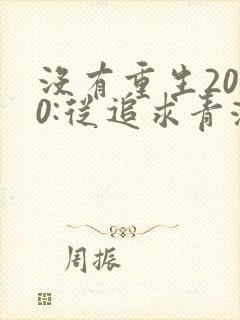 沒有重生20
0:從追求青
周振